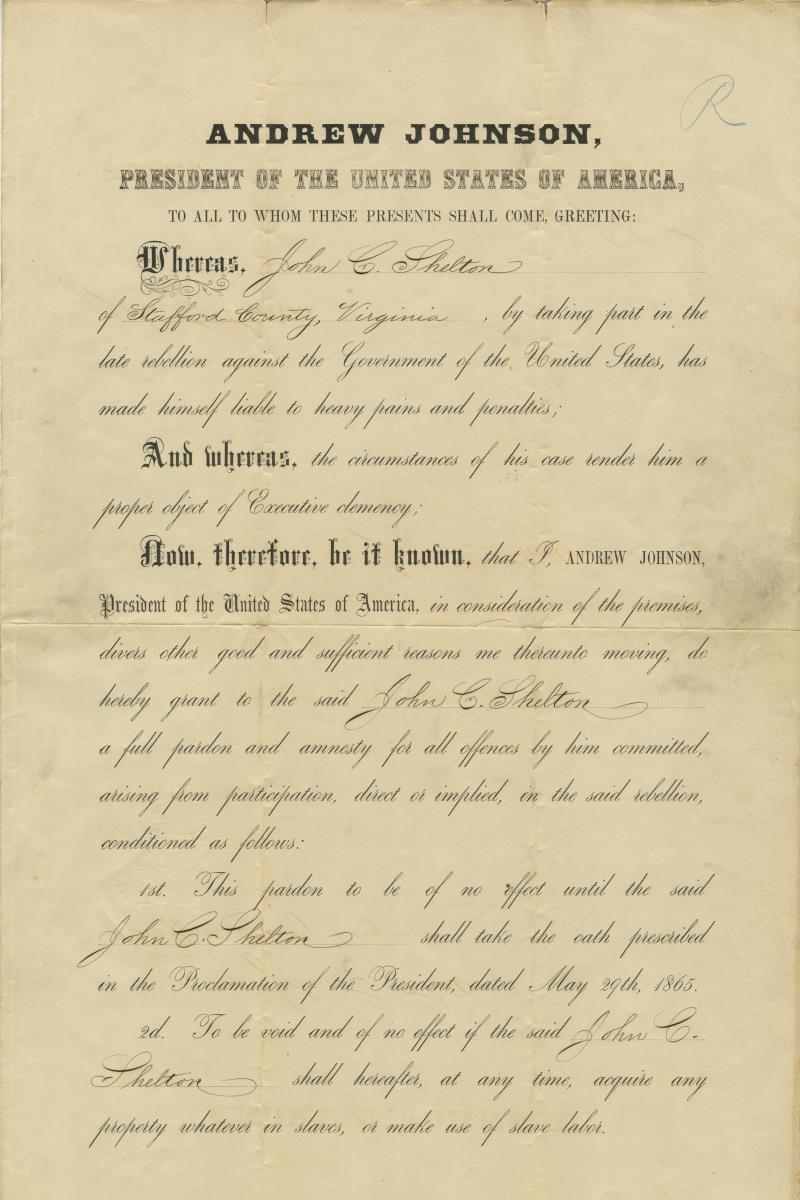 R
ANDREW JOHNSON,
PRESIDENT OF THE UNITED STATES OF AMERICA,
TO ALL TO WHOM THESE PRESENTS SHALL COME, GREETING:
Whereas, John C. Shelton
of Stafford County, Virginia, by taking part in the
late rebellion against the Government of the United States, has
made himself liable to heavy pains and penalties;
And whereas, the circumstances of his case render him a
proper object of Executive clemency;
Now, therefore, be it known, that I, ANDREW JOHNSON,
President of the United States of America, in consideration of the premises,
divers other good and sufficient reasons me thereunto moving, do
hereby grant to the said John C. Shelton
a full pardon and amnesty for all offences by him committed,
arising from participation, direct or implied, in the said rebellion,
conditioned as follows:
1st. This pardon to be of no effect until the said
John C. Shelton shall take the oath prescribed
in the Proclamation of the President, dated May 29th, 1865.
2d. To be void and of no effect if the said John C.
Shelton shall hereafter, at any time, acquire any
property whatever in slaves, or make use of slave labor.